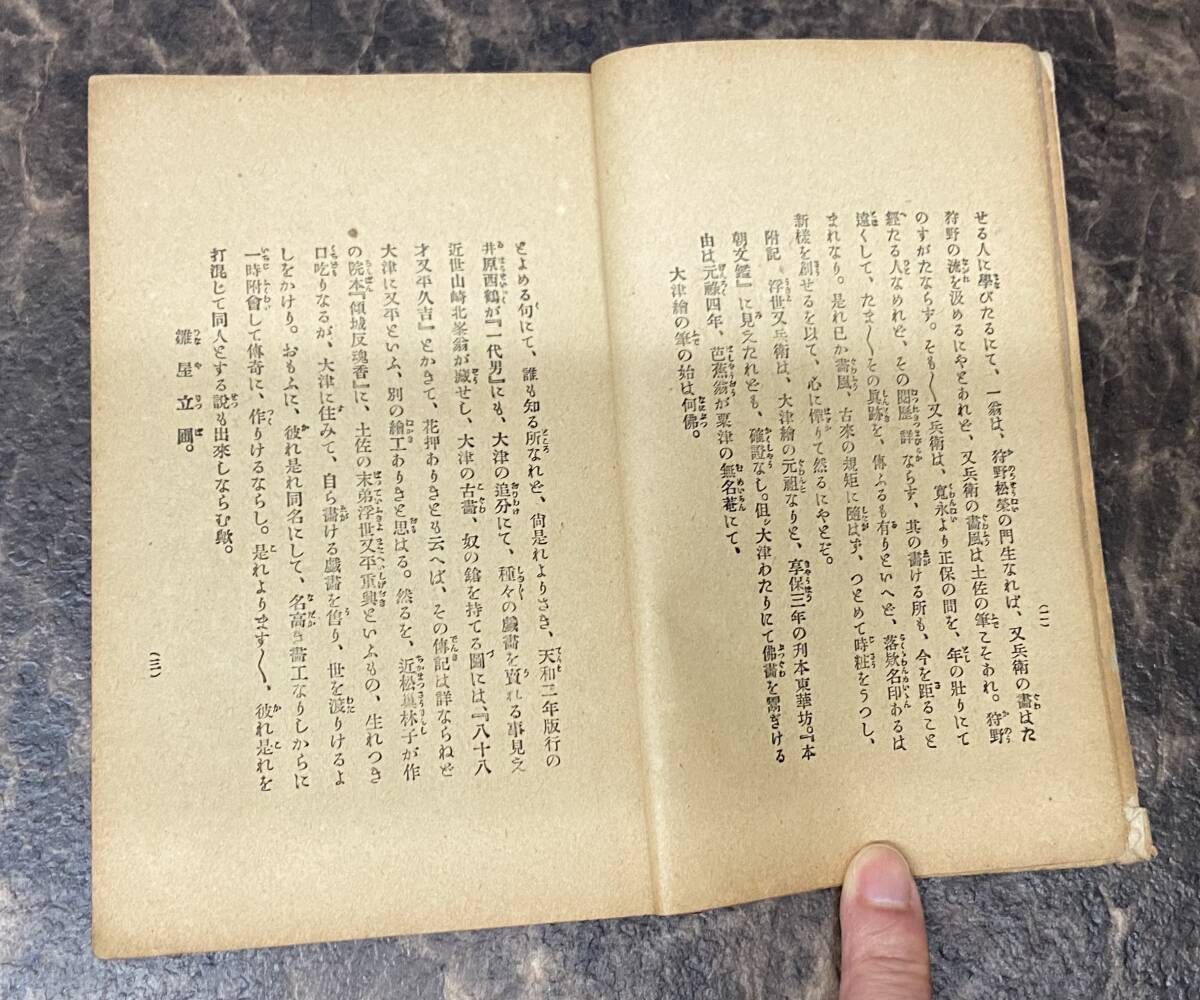 せる人に學びたるにて、一翁は、狩野松榮の門生なれば、又兵衛の畵はた
狩野の流を汲めるにやとあれど、又兵衛の畵風は土佐の筆こそあれ。狩野
のすがたならず。そも〳〵又兵衛は、寛永より正保の間を、年の壯りにて
經たる人なめれど、その閲歴詳ならず、其の畵ける所も、今を距ること
遠くして、たま〳〵その眞跡を、傳ふるも有りといへど、落欵名印あるは
まれなり。是れ已か畵風、古來の規矩に隨はず、つとめて時粧をうつし、
新樣を創せるを以て、心に憚りて然るにやとぞ。
附記 浮世又兵衛は、大津繪の元祖なりと、享保三年の刊本東華坊。『本
朝文鑑』に見えたれども、確證なし。但シ大津わたりにて佛畵を鬻ぎける
由は元祿四年、芭蕉翁が粟津の無名菴にて、
大津繪の筆の始は何佛。
(二)
とよめる句にて、誰も知る所なれど、尙是れよりさき、天和二年版行の
井原西鶴が『一代男』にも、大津の追分にて、種々の戯畵を賣れる事見え
近世山崎北峯翁が藏せし、大津の古畵、奴の鎗を持てる圖には、『八十八
才又平久吉』とかきて、花押ありきとも云へば、その傳記は詳ならねど
大津に又平といふ、別の繪工ありきと思はる。然るを、近松巢林子が作
の院本『傾城反魂香』に、土佐の末弟浮世又平重興といふもの、生れつき
口吃りなるが、大津に住みて、自ら畵ける戯畵を售り、世を渡りけるよ
しをかけり。おもふに、彼れ是れ同名にして、名高き畵工なりしからに
一時附會して傳奇に、作りけるならし。是れよります〳〵、彼れ是れを
打混じて同人とする説も出來しならむ歟。
雛屋立圃。
(三)